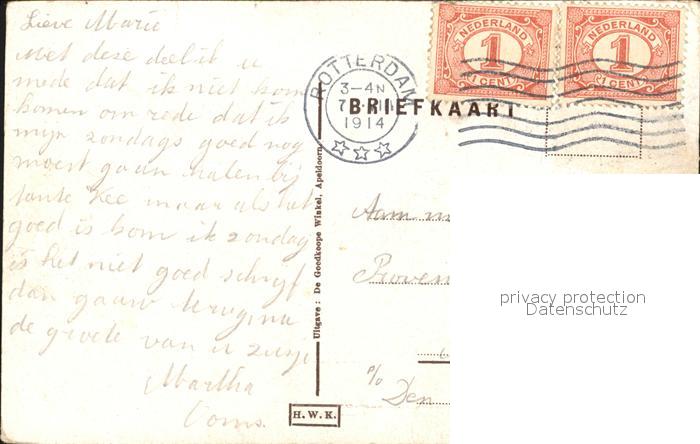 Lieve Marie
Met deze deel ik u
mede dat ik niet kom
komen om rede dat ik
mijn zondags goed nog
moest gaan halen bij
tante Kee maar als het
goed is kom ik zondag
is het niet goed schrijf
dan gauw terug nu
de groete van u zusje
Martha
ROTTERDAM
3-4N
1914
BRIEFKAART
NEDERLAND
1
1 CENT
NEDERLAND
1
1 CENT
Uitgave: De Goedkoope Winkel, Apeldoorn
H.W.K.
Aan
Proven
p/o
Den
privacy protection
Datenschutz